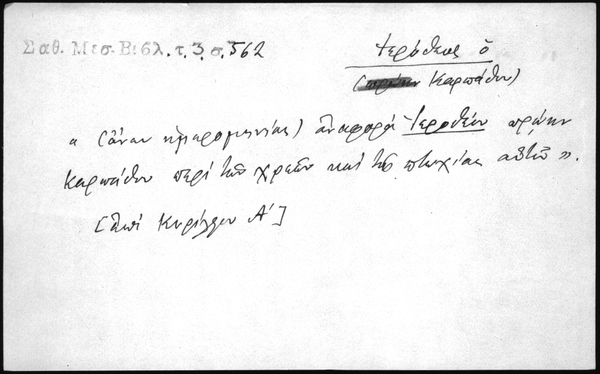 Σαθ. Μεσ. Βιβλ. τ. 3. σ. 562
Ἱερόθεος ὁ
(Καρπάθου)
« (ἄνευ ἡμερομηνίας) ἀναφορά Ἱεροθέου πρώην
Καρπάθου περί τῶν χρεῶν καί τῆς πτωχείας αὐτοῦ ».
[ἐπί Κυρίλλου Α']